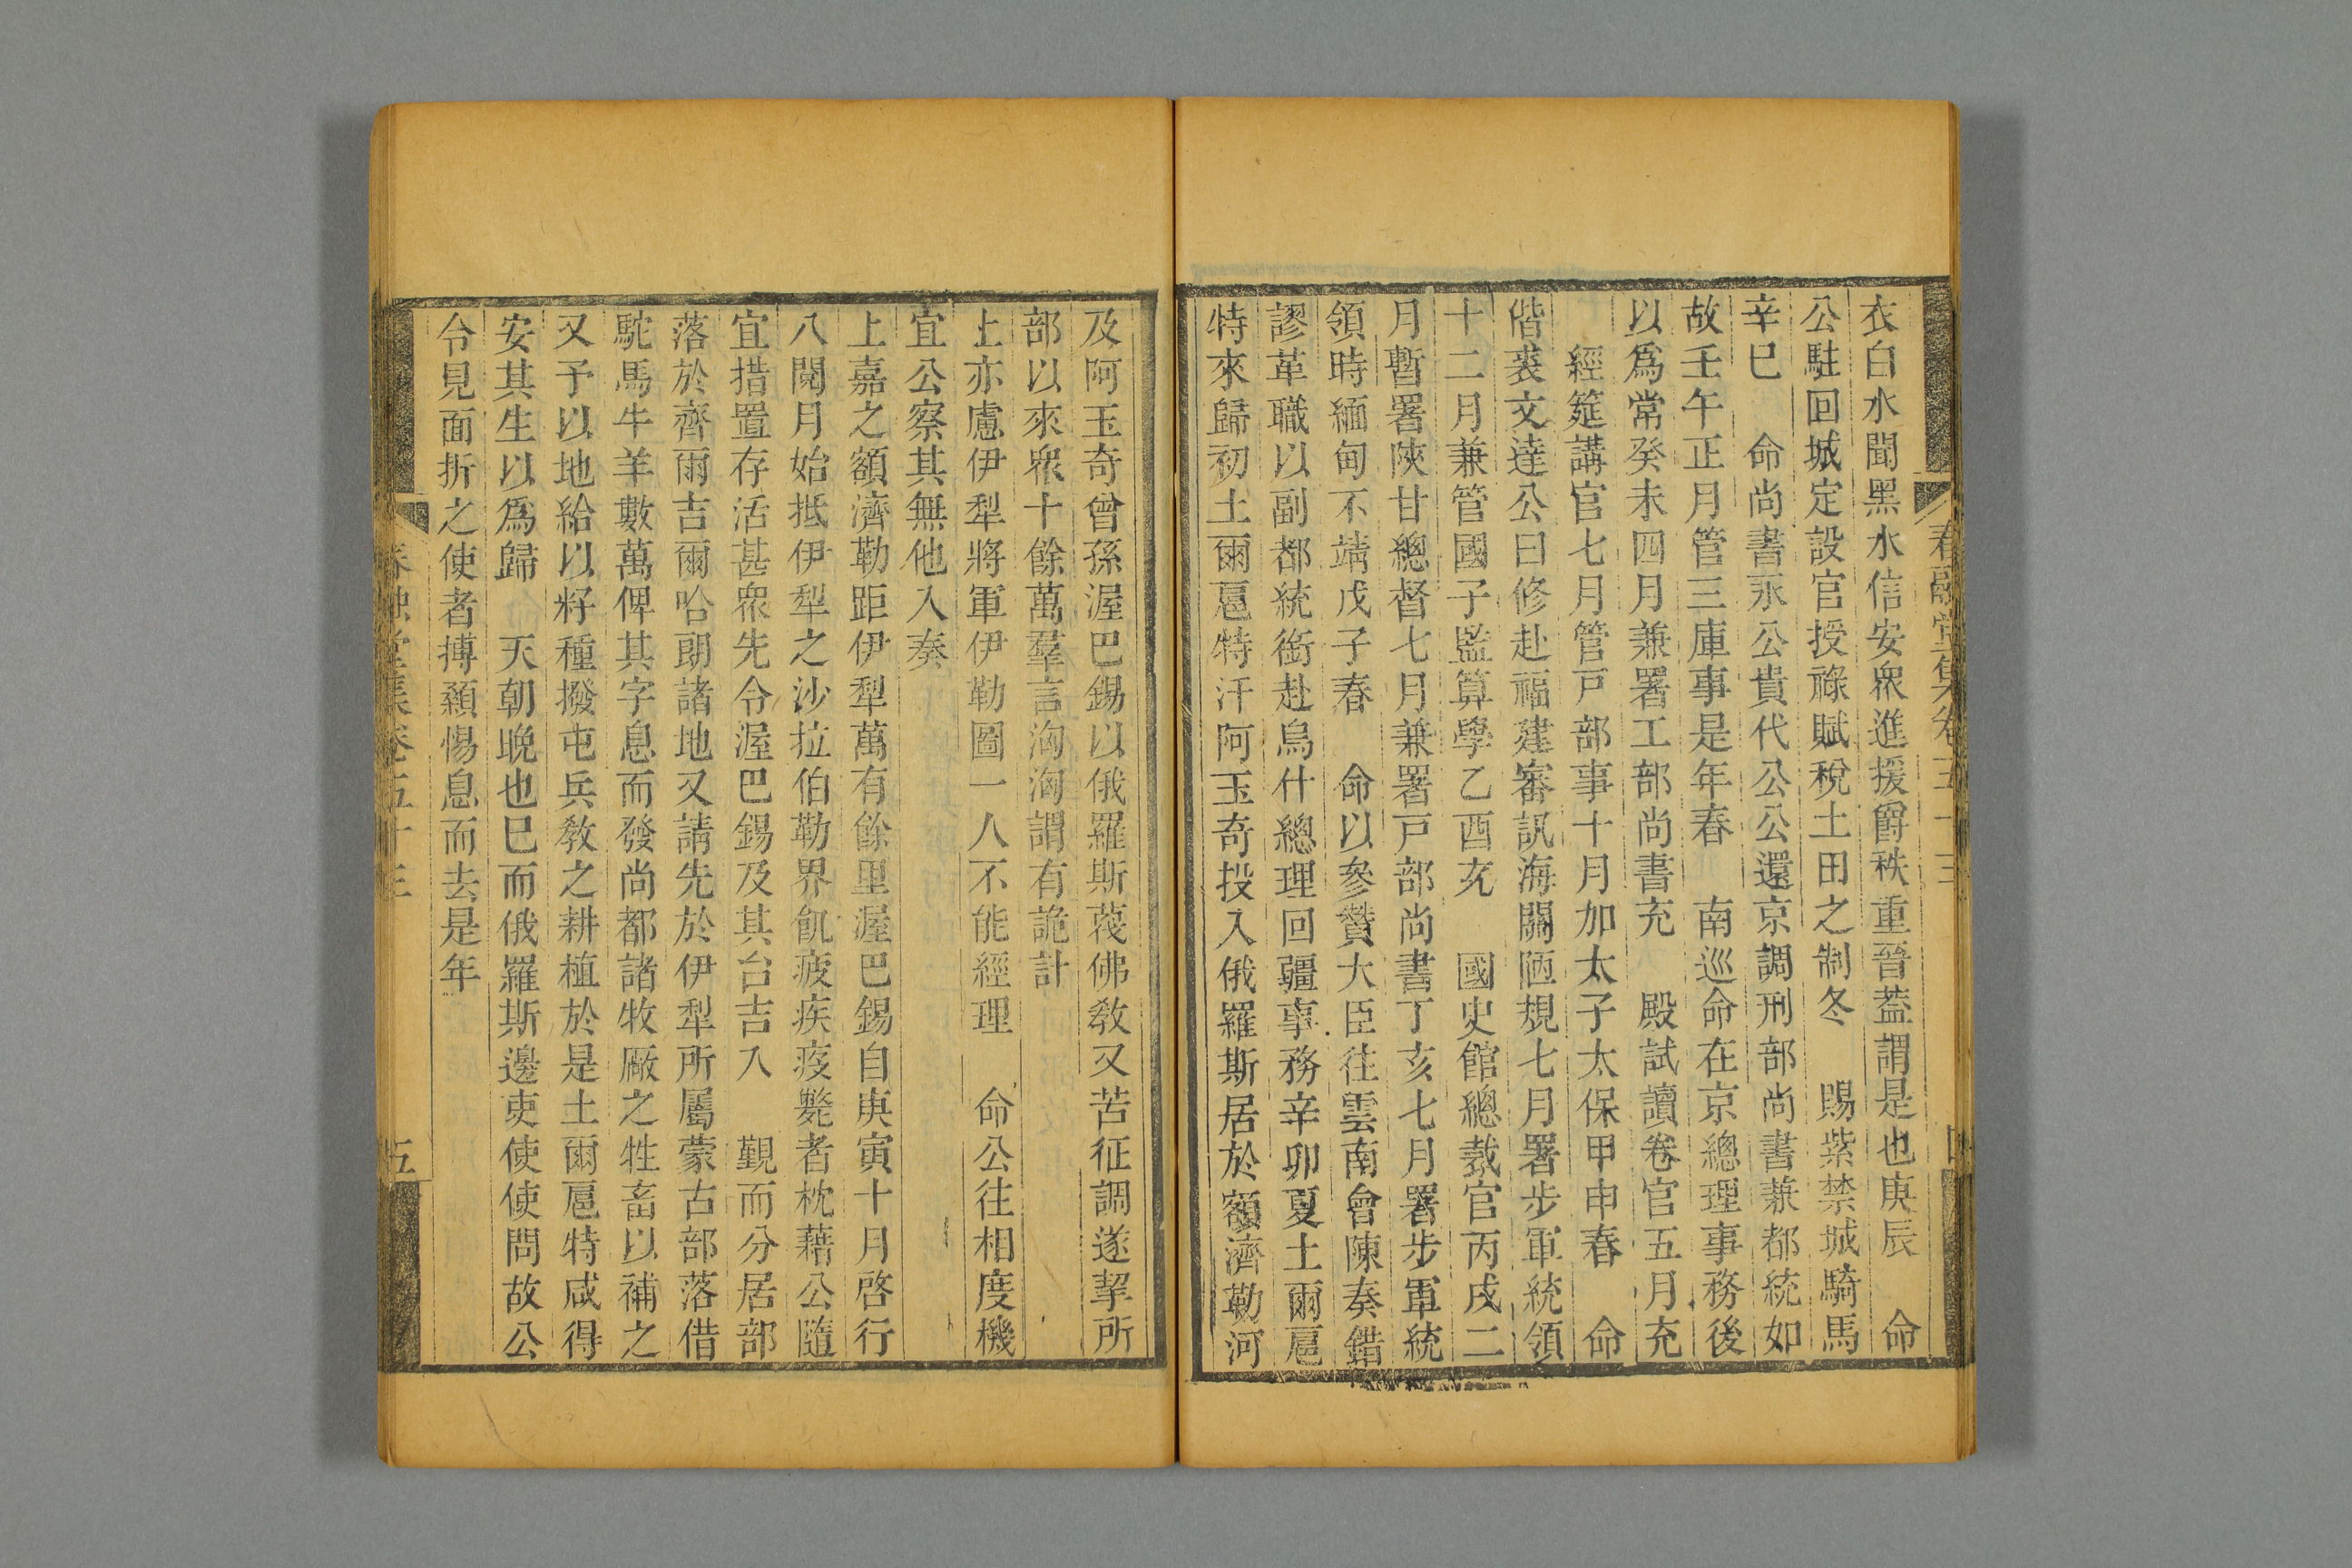 衣白水聞黑水信安衆進援爵秩重晉葢謂是也庚辰　命
公駐回城定設官授祿賦稅土田之制冬　賜紫禁城騎馬
辛巳　命尚書永公貴代公公還京調刑部尚書兼都統如
故壬午正月管三庫事是年春　南巡命在京總理事務後
以爲常癸未四月兼署工部尚書充　殿試讀卷官五月充
經筵講官七月管戸部事十月加太子太保甲申春　命
偕裘文達公曰修赴福建審訊海關陋規七月署步軍統領
十二月兼管國子監算學乙酉充　國史館總裁官丙戌二
月暫署陝甘總督七月兼署戸部尚書丁亥七月署步軍統
領時緬甸不靖戊子春　命以參贊大臣往雲南會陳奏錯
謬革職以副都統銜赴烏什總理回疆事務辛卯夏土爾扈
特來歸初土爾扈特汗阿玉奇投入俄羅斯居於額濟勒河
及阿玉奇曾孫渥巴錫以俄羅斯蔑佛敎又苦征調遂挈所
部以來衆十餘萬羣言洶洶謂有詭計
上亦慮伊犁將軍伊勒圖一人不能經理　命公往相度機
宜公察其無他入奏
上嘉之額濟勒距伊犁萬有餘里渥巴錫自庚寅十月啓行
八閱月始抵伊犁之沙拉伯勒界飢疲疾疫斃者枕藉公隨
宜措置存活甚衆先令渥巴錫及其台吉入　覲而分居部
落於齊爾吉爾哈朗諸地又請先於伊犁所屬蒙古部落借
駝馬牛羊數萬俾其字息而發尚都諸牧廠之牲畜以補之
又予以地給以籽種撥屯兵敎之耕植於是土爾扈特咸得
安其生以爲歸　天朝晚也已而俄羅斯邊吏使使問故公
令見面折之使者搏顙惕息而去是年
春融堂集卷五十三
五